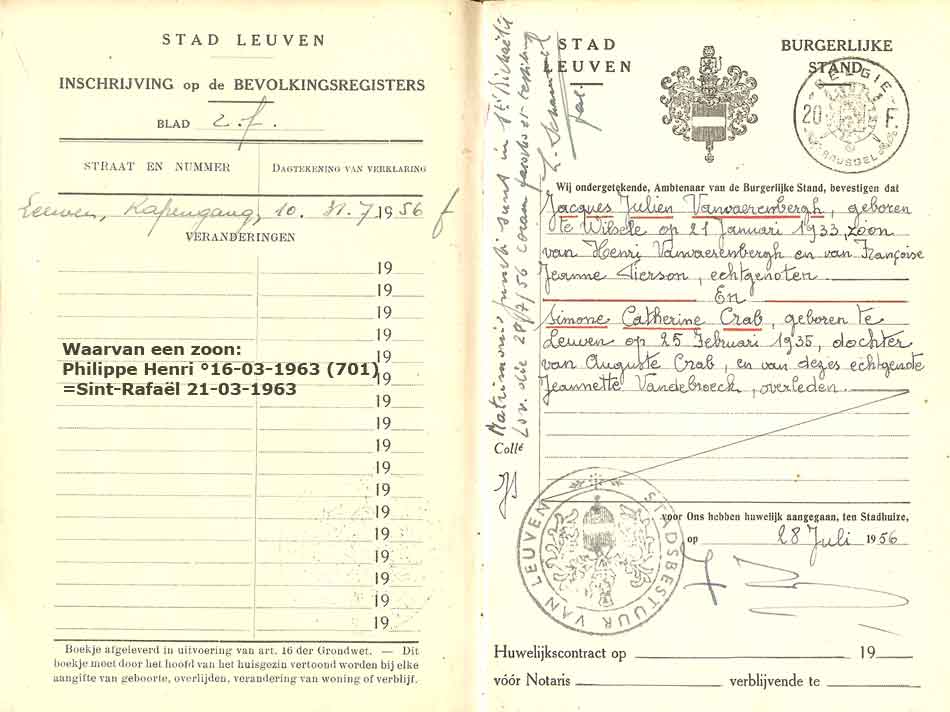 STAD LEUVEN
INSCHRIJVING op de BEVOLKINGSREGISTERS
BLAD 2.f.
STRAAT EN NUMMER DAGTEKENING VAN VERKLARING
Leeuven, Kapengang, 10. 31.7 1956
VERANDERINGEN
19
19
19
19
Waarvan een zoon:
Philippe Henri °16-03-1963 (701)
=Sint-Rafaël 21-03-1963
19
19
19
19
19
19
19
19
19
19
19
19
19
Boekje afgeleverd in uitvoering van art. 16 der Grondwet. — Dit
boekje moet door het hoofd van het huisgezin vertoond worden bij elke
aangifte van geboorte, overlijden, verandering van woning of verblijf.
Matrimonio juncti sunt in St Michaëlis
Lov. die 28/7/56 coram parocho et testibus
Collé
STAD
LEUVEN
BURGERLIJKE
STAND
BELGIE
20 F.
BRUSSEL
Wij ondergetekende, Ambtenaar van de Burgerlijke Stand, bevestigen dat
Jacques Julien Vanwaerenbergh, geboren
te Wilsele op 21 Januari 1933, zoon
van Henri Vanwaerenbergh en van Françoise
Jeanne Pierson, echtgenoten.
En
Simone Catherine Crab, geboren te
Leuven op 25 Februari 1935, dochter
van Auguste Crab, en van dezes echtgenote
Jeannette Vandebroeck, overleden.
STADSBESTUUR VAN LEUVEN
voor Ons hebben huwelijk aangegaan, ten Stadhuize,
op 28 Juli 1956
Huwelijkscontract op 19
vóór Notaris verblijvende te